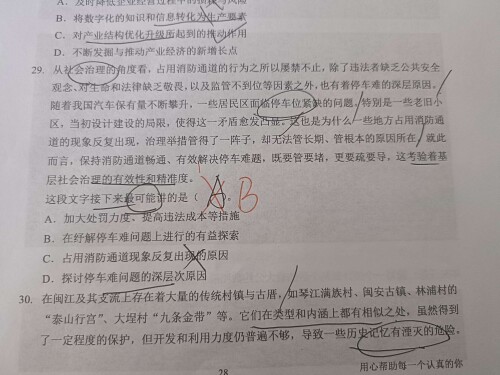 A. 及时降低企业经营过程中的损耗与风险
B. 将数字化的知识和信息转化为生产要素
C. 对产业结构优化升级所起到的推动作用
D. 不断发掘与推动产业经济的新增长点
29. 从社会治理的角度看，占用消防通道的行为之所以屡禁不止，除了违法者缺乏公共安全
观念、对生命和法律缺乏敬畏，以及监管不到位等因素之外，也有着停车难的深层原因。
随着我国汽车保有量不断攀升，一些居民区面临停车位紧缺的问题，特别是一些老旧小
区，当初设计建设的局限，使得这一矛盾愈发凸显。这也是为什么一些地方占用消防通
道的现象反复出现，治理举措管得了一阵子，却无法管长期、管根本的原因所在，就此
而言，保持消防通道畅通、有效解决停车难题，既要管要堵，更要疏要导，这考验着基
层社会治理的有效性和精准度。
这段文字接下来最可能讲的是（ A ）。 B
A. 加大处罚力度、提高违法成本等措施
B. 在纾解停车难问题上进行的有益探索
C. 占用消防通道现象反复出现的原因
D. 探讨停车难问题的深层次原因
30. 在闽江及其支流上存在着大量的传统村镇与古厝，如琴江满族村、闽安古镇、林浦村的
“泰山行宫”、大埕村“九条金带”等。它们在类型和内涵上都有相似之处，虽然得到
了一定程度的保护，但开发和利用力度仍普遍不够，导致一些历史记忆有湮灭的危险。
28
用心帮助每一个认真的你